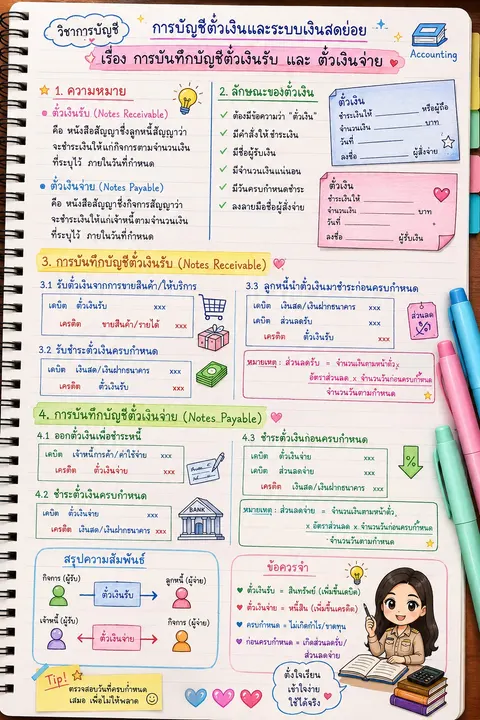 วิชาการบัญชี
การบัญชีตั๋วเงินและระบบเงินสดย่อย
เรื่อง การบันทึกบัญชีตั๋วเงินรับ และ ตั๋วเงินจ่าย
Accounting
1. ความหมาย
ตั๋วเงินรับ (Notes Receivable)
คือ หนังสือสัญญาซึ่งลูกหนี้สัญญาว่า
จะชำระเงินให้แก่กิจการตามจำนวนเงิน
ที่ระบุไว้ ภายในวันที่กำหนด
ตั๋วเงินจ่าย (Notes Payable)
คือ หนังสือสัญญาซึ่งกิจการสัญญาว่า
จะชำระเงินให้แก่เจ้าหนี้ตามจำนวนเงิน
ที่ระบุไว้ ภายในวันที่กำหนด
2. ลักษณะของตั๋วเงิน
✓ ต้องมีข้อความว่า "ตั๋วเงิน"
✓ มีคำสั่งให้ชำระเงิน
✓ มีชื่อผู้รับเงิน
✓ มีจำนวนเงินแน่นอน
✓ มีวันครบกำหนดชำระ
✓ ลงลายมือชื่อผู้สั่งจ่าย
ตั๋วเงิน
ชำระเงินให้ ________ หรือผู้ถือ
จำนวนเงิน ________ บาท
วันที่ ________
ลงชื่อ ________ ผู้สั่งจ่าย
ตั๋วเงิน
ชำระเงินให้ ________
จำนวนเงิน ________ บาท
วันที่ ________
ลงชื่อ ________ ผู้รับเงิน
3. การบันทึกบัญชีตั๋วเงินรับ (Notes Receivable)
3.1 รับตั๋วเงินจากการขายสินค้า/ให้บริการ
เดบิต ตั๋วเงินรับ xxx
เครดิต ขายสินค้า/รายได้ xxx
3.2 รับชำระตั๋วเงินครบกำหนด
เดบิต เงินสด/เงินฝากธนาคาร xxx
เครดิต ตั๋วเงินรับ xxx
3.3 ลูกหนี้นำตั๋วเงินมาชำระก่อนครบกำหนด
เดบิต เงินสด/เงินฝากธนาคาร xxx
เดบิต ส่วนลดรับ xxx
เครดิต ตั๋วเงินรับ xxx
ส่วนลด
%
หมายเหตุ : ส่วนลดรับ = จำนวนเงินตามหน้าตั๋ว x
อัตราส่วนลด x จำนวนวันก่อนครบกำหนด
จำนวนวันตามกำหนด
4. การบันทึกบัญชีตั๋วเงินจ่าย (Notes Payable)
4.1 ออกตั๋วเงินเพื่อชำระหนี้
เดบิต เจ้าหนี้การค้า/ค่าใช้จ่าย xxx
เครดิต ตั๋วเงินจ่าย xxx
4.2 ชำระตั๋วเงินครบกำหนด
เดบิต ตั๋วเงินจ่าย xxx
เครดิต เงินสด/เงินฝากธนาคาร xxx
BANK
4.3 ชำระตั๋วเงินก่อนครบกำหนด
เดบิต ตั๋วเงินจ่าย xxx
เดบิต ส่วนลดจ่าย xxx
เครดิต เงินสด/เงินฝากธนาคาร xxx
%
หมายเหตุ : ส่วนลดจ่าย = จำนวนเงินตามหน้าตั๋ว
x อัตราส่วนลด x จำนวนวันก่อนครบกำหนด
จำนวนวันตามกำหนด
สรุปความสัมพันธ์
กิจการ (ผู้รับ)
ตั๋วเงินรับ
ลูกหนี้ (ผู้จ่าย)
เจ้าหนี้ (ผู้รับ)
ตั๋วเงินจ่าย
กิจการ (ผู้จ่าย)
ข้อควรจำ
ตั๋วเงินรับ = สินทรัพย์ (เพิ่มขึ้นเดบิต)
ตั๋วเงินจ่าย = หนี้สิน (เพิ่มขึ้นเครดิต)
ครบกำหนด = ไม่เกิดกำไร/ขาดทุน
ก่อนครบกำหนด = เกิดส่วนลดรับ/
ส่วนลดจ่าย
Tip!
ตรวจสอบวันที่ครบกำหนด
เสมอ เพื่อไม่ให้พลาด
ตั้งใจเรียน
เข้าใจง่าย
ใช้ได้จริง